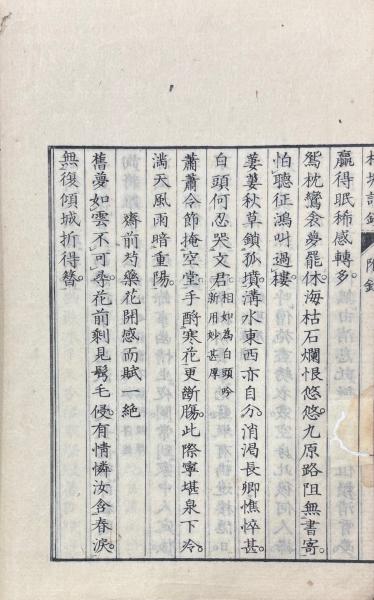 詩鈔 附錄
贏得眠稀感轉多。
鴛枕鸞衾夢罷休。海枯石爛恨悠悠。九原路阻無書寄。
怕聽征鴻叫過樓。
萋萋秋草鎖孤墳。溝水東西亦自分。消渴長卿憔悴甚。
白頭何忍哭文君。相如為白頭吟
新用妙甚厚
蕭蕭令節掩空堂。手酹寒花更斷腸。此際寧堪泉下冷。
滿天風雨暗重陽。
齋前芍藥花開感而賦一絕
舊夢如雲不可尋。花前剩見鬂毛侵。有情憐汝含春淚。
無復傾城折得簪。